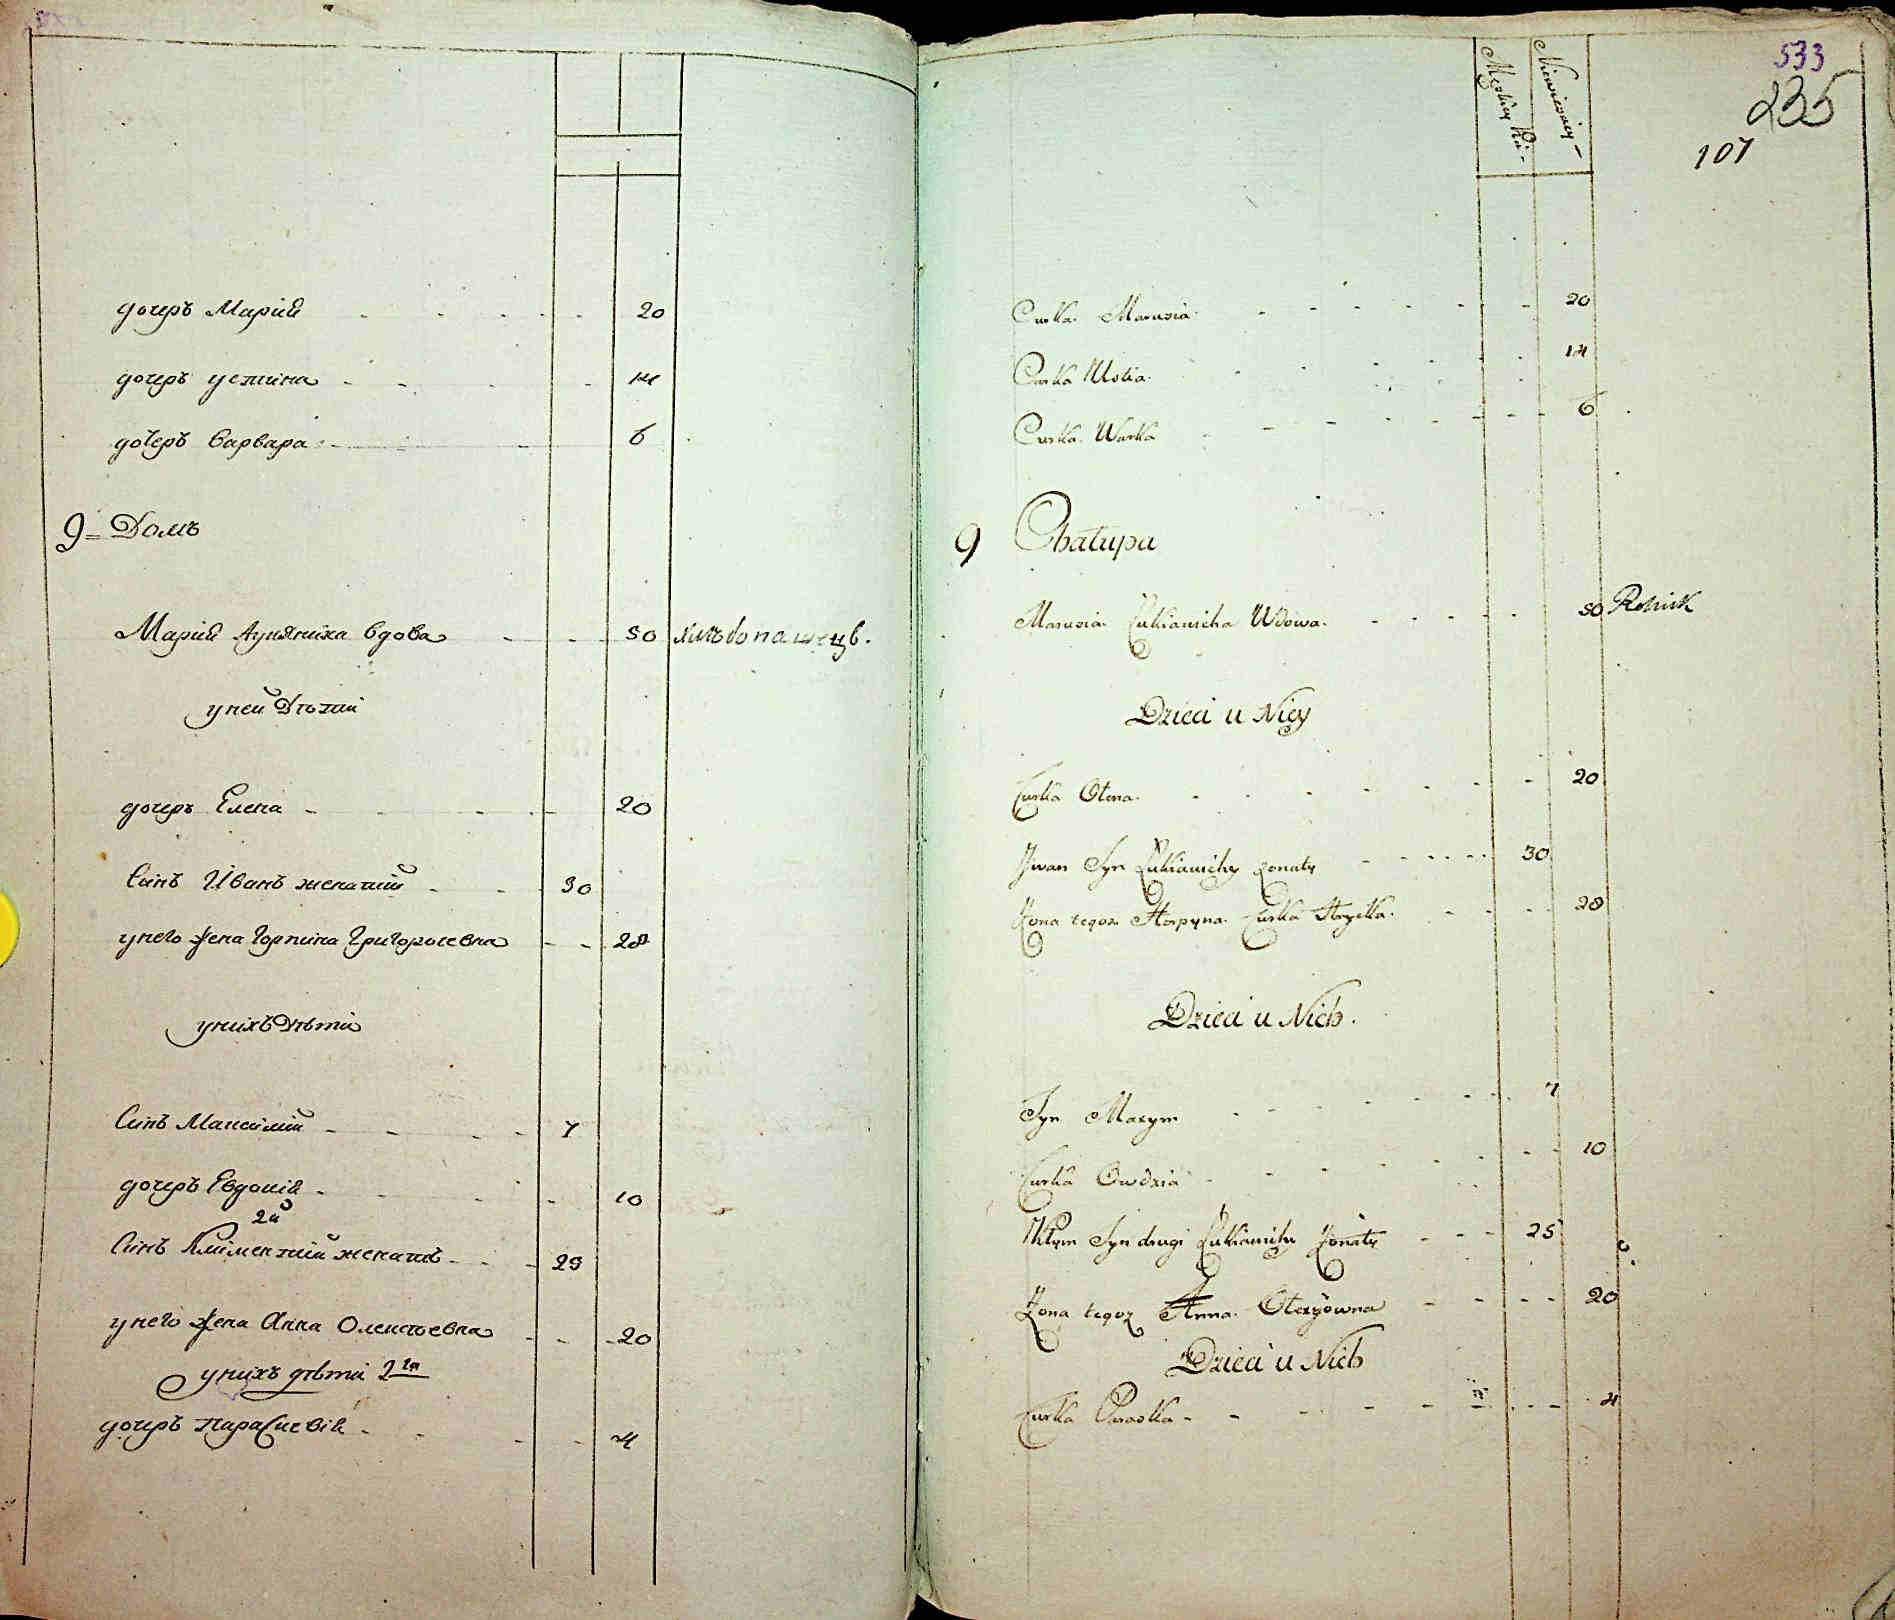 дочеръ Марія - - - - - 20
дочеръ устина - - - - 14
дочеръ варвара - - 6
9= Домъ
Марія Лукяниха вдова - - - 50
уней Дѣти
дочеръ Елена - - - - 20
Синъ Иванъ женатий - - - 30
унего жена Горпина Григорьевна - - 28
унихъ Дѣти
Синъ Максимій - - - - 7
дочеръ Евдокія - - - - 10
2й
Синъ Климентий женатъ - - - 25
унего жена Анна Олексѣевна - - - 20
унихъ дѣти 2га
дочеръ параскевія - - - - 4
533
235
107
Męskiey Niewieściey -
Curka Marusia - - - - - - 20
Curka Ustia - - - - 14
Curka Warka - - - - - - - 6
9 Chałupa
Marusia Łukianicha Wdowa - - - - - 50 Rolnik
Dzieci u Niey
Curka Ołena - - - - - - - 20
Jwan Syn Łukianichy żonaty - - - - - - 30
Żona tegoz Horpyna Curka Hryćka - - - - 28
Dzieci u Nich.
Syn Maxym - - - - - - - 7
Curka Owdzia - - - - - - - 10
Kłym Syn drugi Łukianichy Żonaty - - - 25
Żona tegoz Anna Ołexyowna - - - - 20
Dzieci u Nich
Curka Paraska - - - - - - - 4